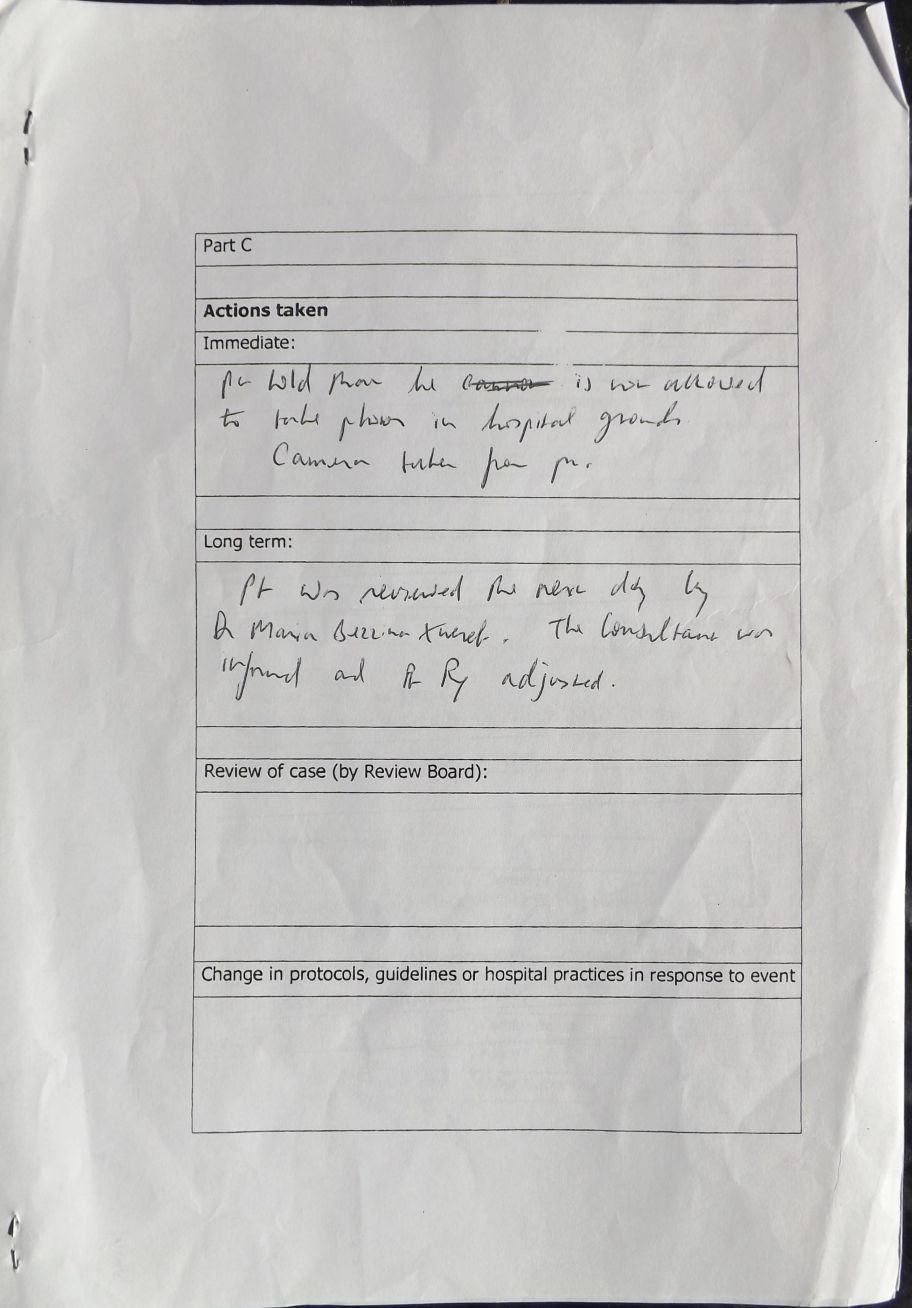 Part C
Actions taken
Immediate:
pt told that he cannot is not allowed
to take photos in hospital grounds.
Camera taken from pt.
Long term:
Pt was reviewed the next day by
Dr Maria Bezzina Xuereb. The Consultant was
informed and pt Rx adjusted.
Review of case (by Review Board):
Change in protocols, guidelines or hospital practices in response to event